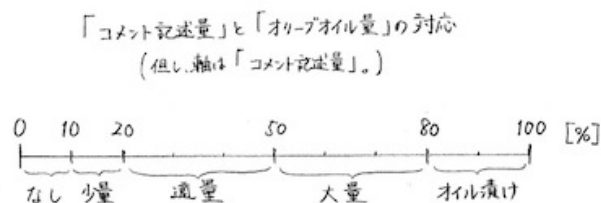 「コメント記述量」と「オリーブオイル量」の対応
(但し、軸は「コメント記述量」。)
0 10 20 50 80 100 [%]
なし 少量 適量 大量 オイル漬け